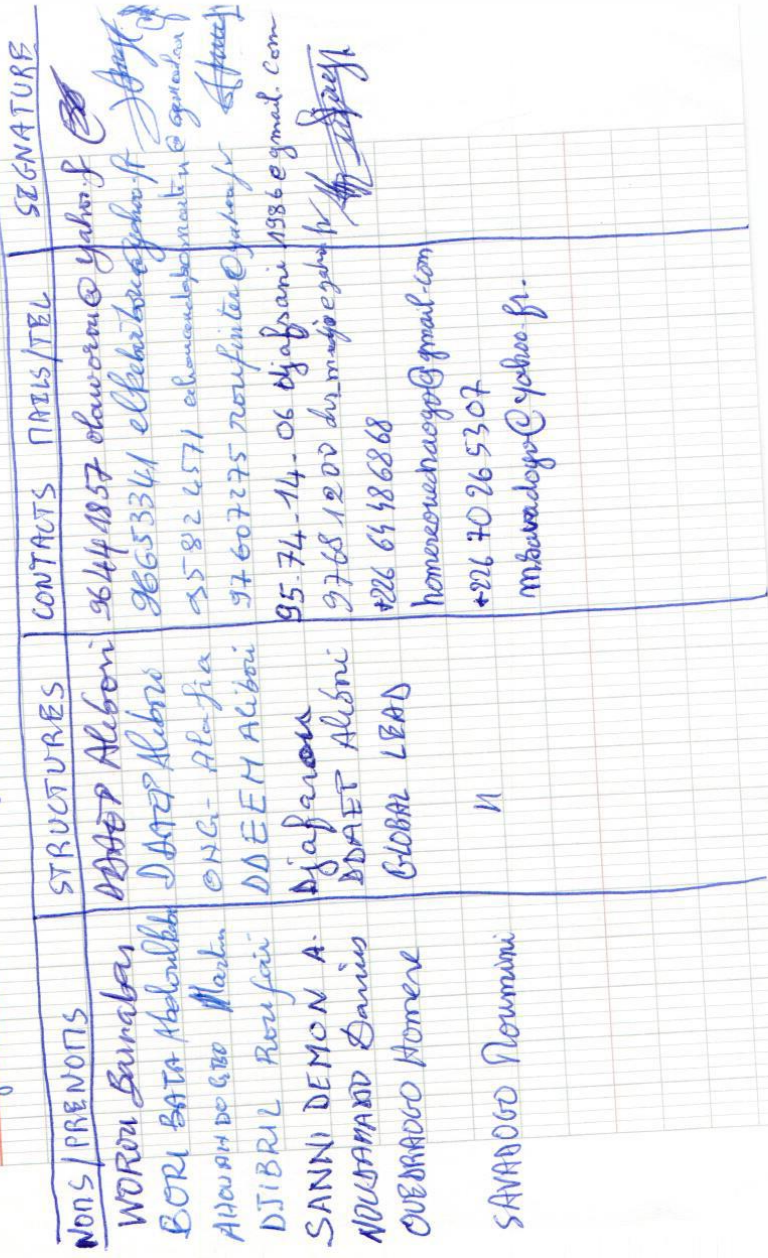 NOMS / PRENOMS STRUCTURES CONTACTS MAILS/TEL SIGNATURE
WOROU Barnabas Aliboni 96441857 olaworou@yahoo.f
BORI BATA DAAEP Alibori 96653341
AHOUANDOGBO Martin ONG- Alafia 95822571
DJIBRIL Roufaï DDEEM Alibori 97607275 roufinter@yahoo.fr
SANNI DEMON A. Djafarou 95.74-14-06 djafsani1986@gmail.com
Darius DDAET Alibori 97681200
OUEDRAOGO Homere GLOBAL LEAD +226 64486868
homereouedraogo@gmail.com
SAVADOGO Moumini 11 +226 70265307
mbavadogo@yahoo.fr.